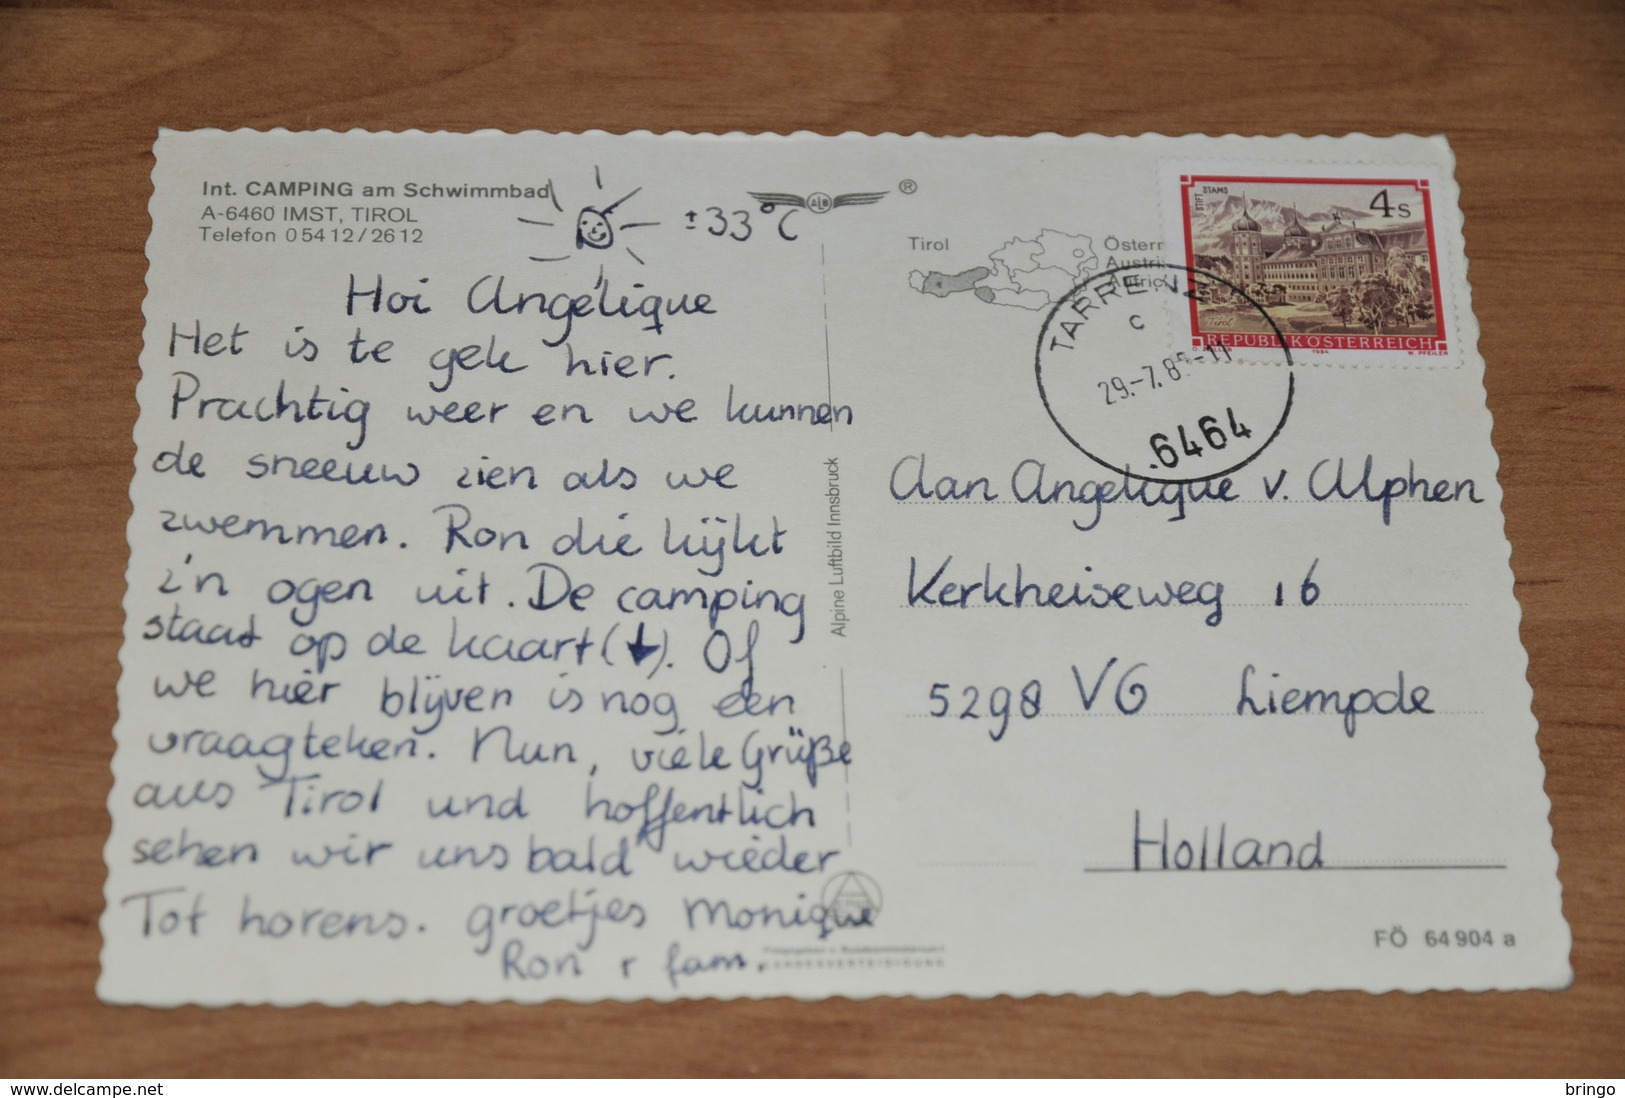 Int. CAMPING am Schwimmbad
A-6460 IMST, TIROL
Telefon 05412/2612
± 33°C
Hoi Angélique
Het is te gek hier.
Prachtig weer en we kunnen
de sneeuw zien als we
zwemmen. Ron die kijkt
z'n ogen uit. De camping
staat op de kaart (↓). Of
we hier blijven is nog een
vraagteken. Nun, viele Grüße
aus Tirol und hoffentlich
sehen wir uns bald wieder
Tot horens. groetjes Monique
Ron + fam.
Alpine Luftbild Innsbruck
ALB
®
Tirol
Österr
Austri
STIFT STAMS
4s
Tirol
REPUBLIK ÖSTERREICH
1984
W. PFEILER
TARRENZ
c
6464
Aan Angelique v. Alphen
Kerkheiseweg 16
5298 VG Liempde
Holland
FÖ 64904 a
LANDESVERTEIDIGUNG
delcampe.net
bringo